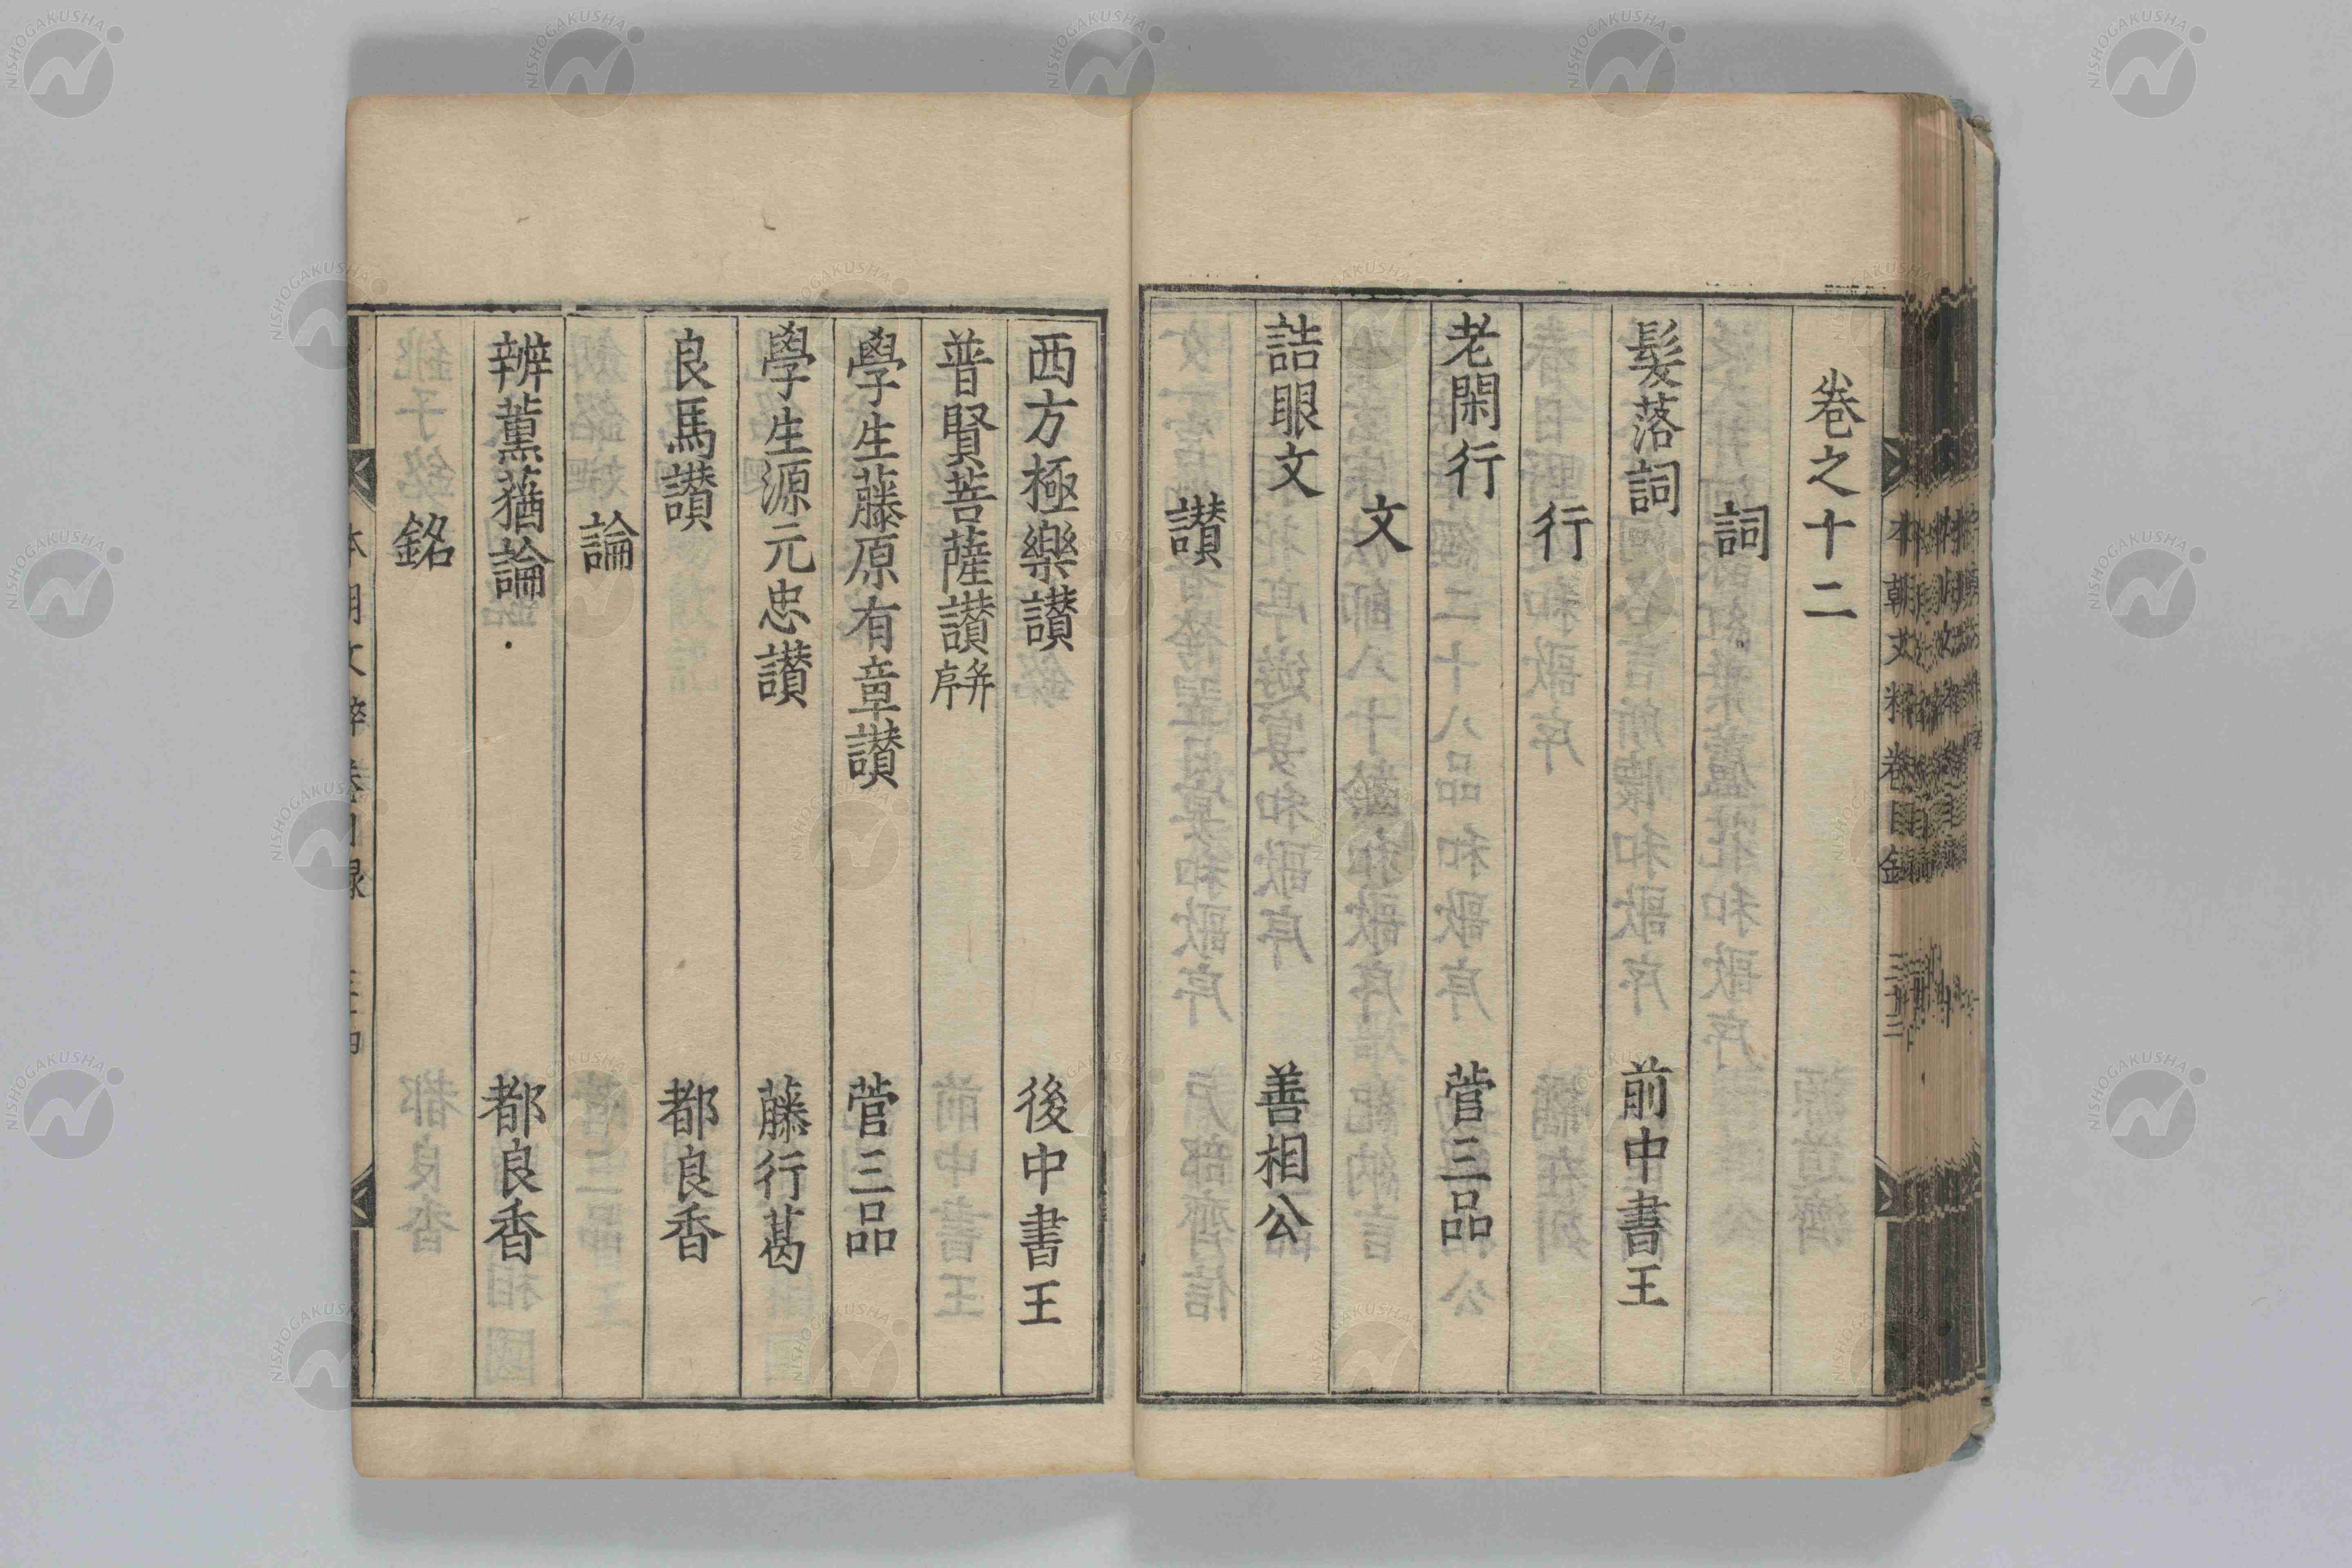 卷之十二
詞
髮落詞 前中書王
行
老閑行 菅三品
文
詰眼文 善相公
讃
西方極樂讃 後中書王
普賢菩薩讃并序
學生藤原有章讃 菅三品
學生源元忠讃 藤行葛
良馬讃 都良香
論
辨薫蕕論 都良香
銘
本朝文粹卷目錄
NISHOGAKUSHA